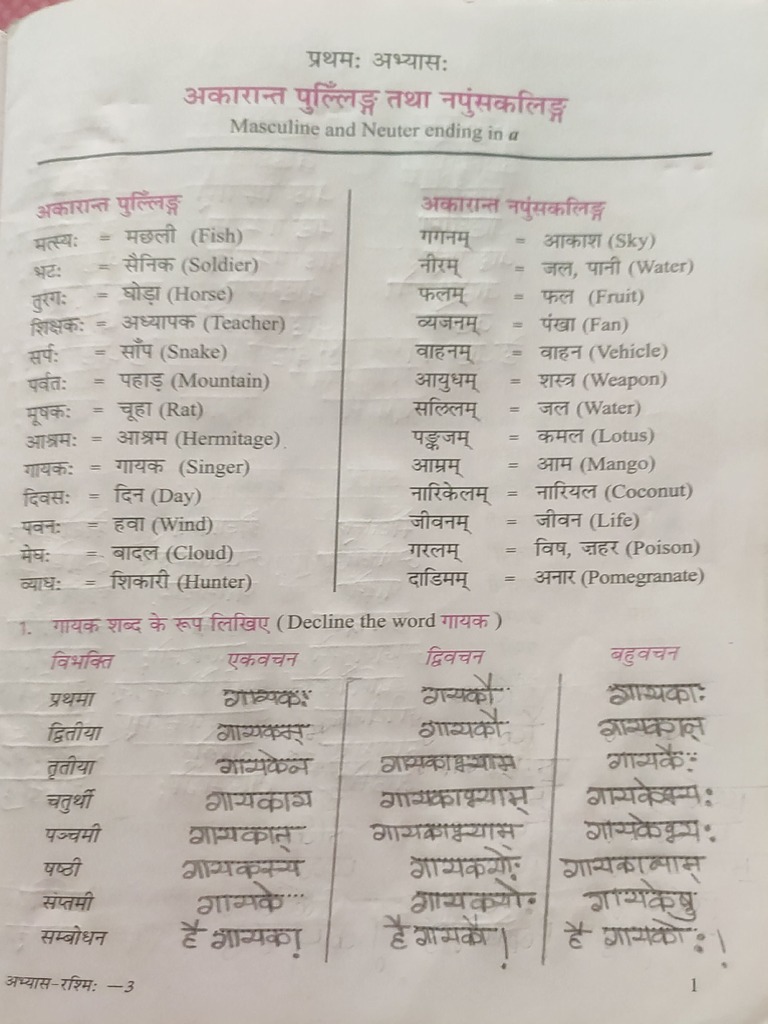 प्रथमः अभ्यासः
अकारान्त पुल्लिँङ्ग तथा नपुंसकलिङ्ग
Masculine and Neuter ending in a
अकारान्त पुल्लिँङ्ग
मत्स्यः = मछली (Fish)
भटः = सैनिक (Soldier)
तुरगः = घोड़ा (Horse)
शिक्षकः = अध्यापक (Teacher)
सर्पः = साँप (Snake)
पर्वतः = पहाड़ (Mountain)
मूषकः = चूहा (Rat)
आश्रमः = आश्रम (Hermitage)
गायकः = गायक (Singer)
दिवसः = दिन (Day)
पवनः = हवा (Wind)
मेघः = बादल (Cloud)
व्याधः = शिकारी (Hunter)
अकारान्त नपुंसकलिङ्ग
गगनम् = आकाश (Sky)
नीरम् = जल, पानी (Water)
फलम् = फल (Fruit)
व्यजनम् = पंखा (Fan)
वाहनम् = वाहन (Vehicle)
आयुधम् = शस्त्र (Weapon)
सलिलम् = जल (Water)
पङ्कजम् = कमल (Lotus)
आम्रम् = आम (Mango)
नारिकेलम् = नारियल (Coconut)
जीवनम् = जीवन (Life)
गरलम् = विष, ज़हर (Poison)
दाडिमम् = अनार (Pomegranate)
1. गायक शब्द के रूप लिखिए (Decline the word गायक)
विभक्ति एकवचन द्विवचन बहुवचन
प्रथमा गायकः गायकौ गायकाः
द्वितीया गायकम् गायकौ
तृतीया गायकेन गायकाभ्याम् गायकैः
चतुर्थी गायकाय गायकाभ्याम् गायकेभ्यः
पञ्चमी गायकात् गायकाभ्याम् गायकेभ्यः
षष्ठी गायकस्य गायकयोः
संप्तमी गायके गायकयोः गायकेषु
सम्बोधन है गायका! है गायकौ! है
अभ्यास-रश्मिः —3 1